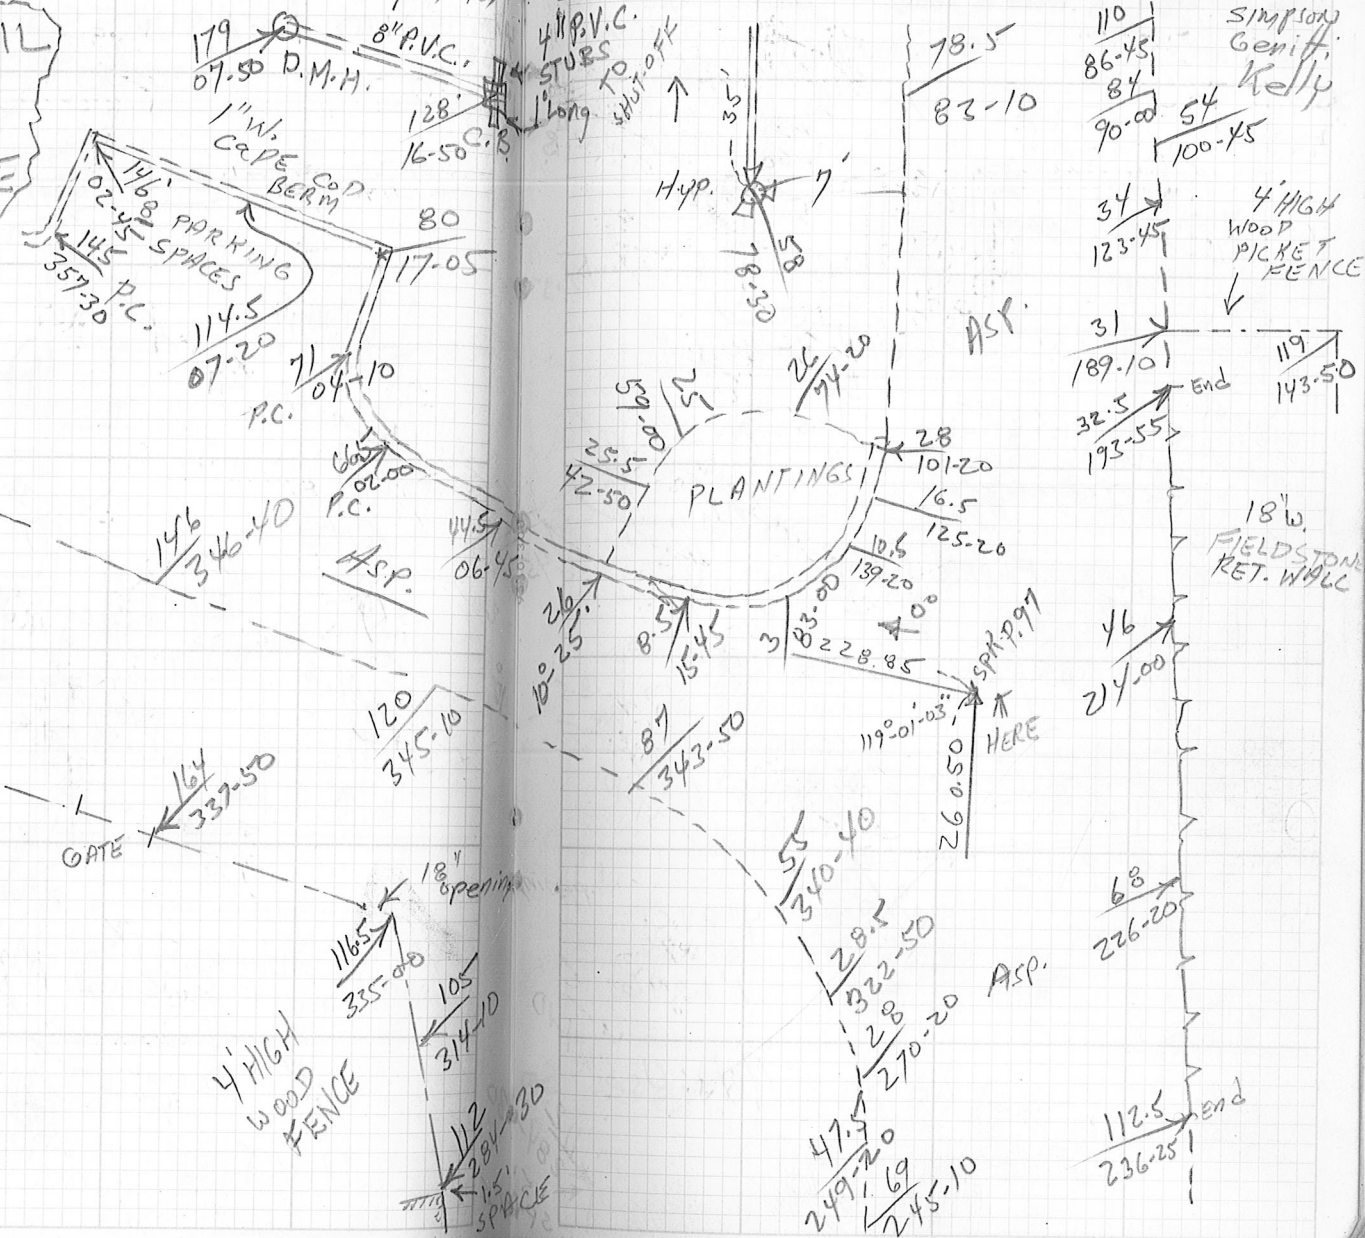 179
07-50
D.M.H.
8" P.V.C.
4" P.V.C.
STUBS
1' Long
TO
SHUT-OFF
128'
16-50
C.B.
1" W.
CAPE COD
BERM
146'
02-45
8 PARKING
SPACES
145
357-30
P.C.
80
17-05
114.5
07-20
71
04-10
P.C.
66.5
02-00
P.C.
44.5
06-45
146
346-40
ASP.
120
345-10
164
337-50
GATE
18"
opening
116.5
335-00
105
314-10
4' HIGH
WOOD
FENCE
112
284-30
1.5'
SPACE
35'
Hyp.
7'
58
78-30
78.5
83-10
ASP.
25
59-00
26
74-20
25.5
42-50
PLANTINGS
28
101-20
16.5
125-20
10.5
139-20
26
10°-25'
8.5
15-45
3
83-00
228.85
0°
SPK P.97
HERE
119°-01'-03"
260.50
87
343-50
55
340-40
28.5
322-50
ASP.
28
270-20
47.5
249-20
69
245-10
Simpson
Geniff.
Kelly
110
86-45
84
90-00
54
100-45
34
123-45
4' HIGH
WOOD
PICKET
FENCE
31
189-10
119
143-50
End
32.5
193-55
18" W.
FIELDSTONE
RET. WALL
46
214-00
68
226-20
112.5
236-25
End